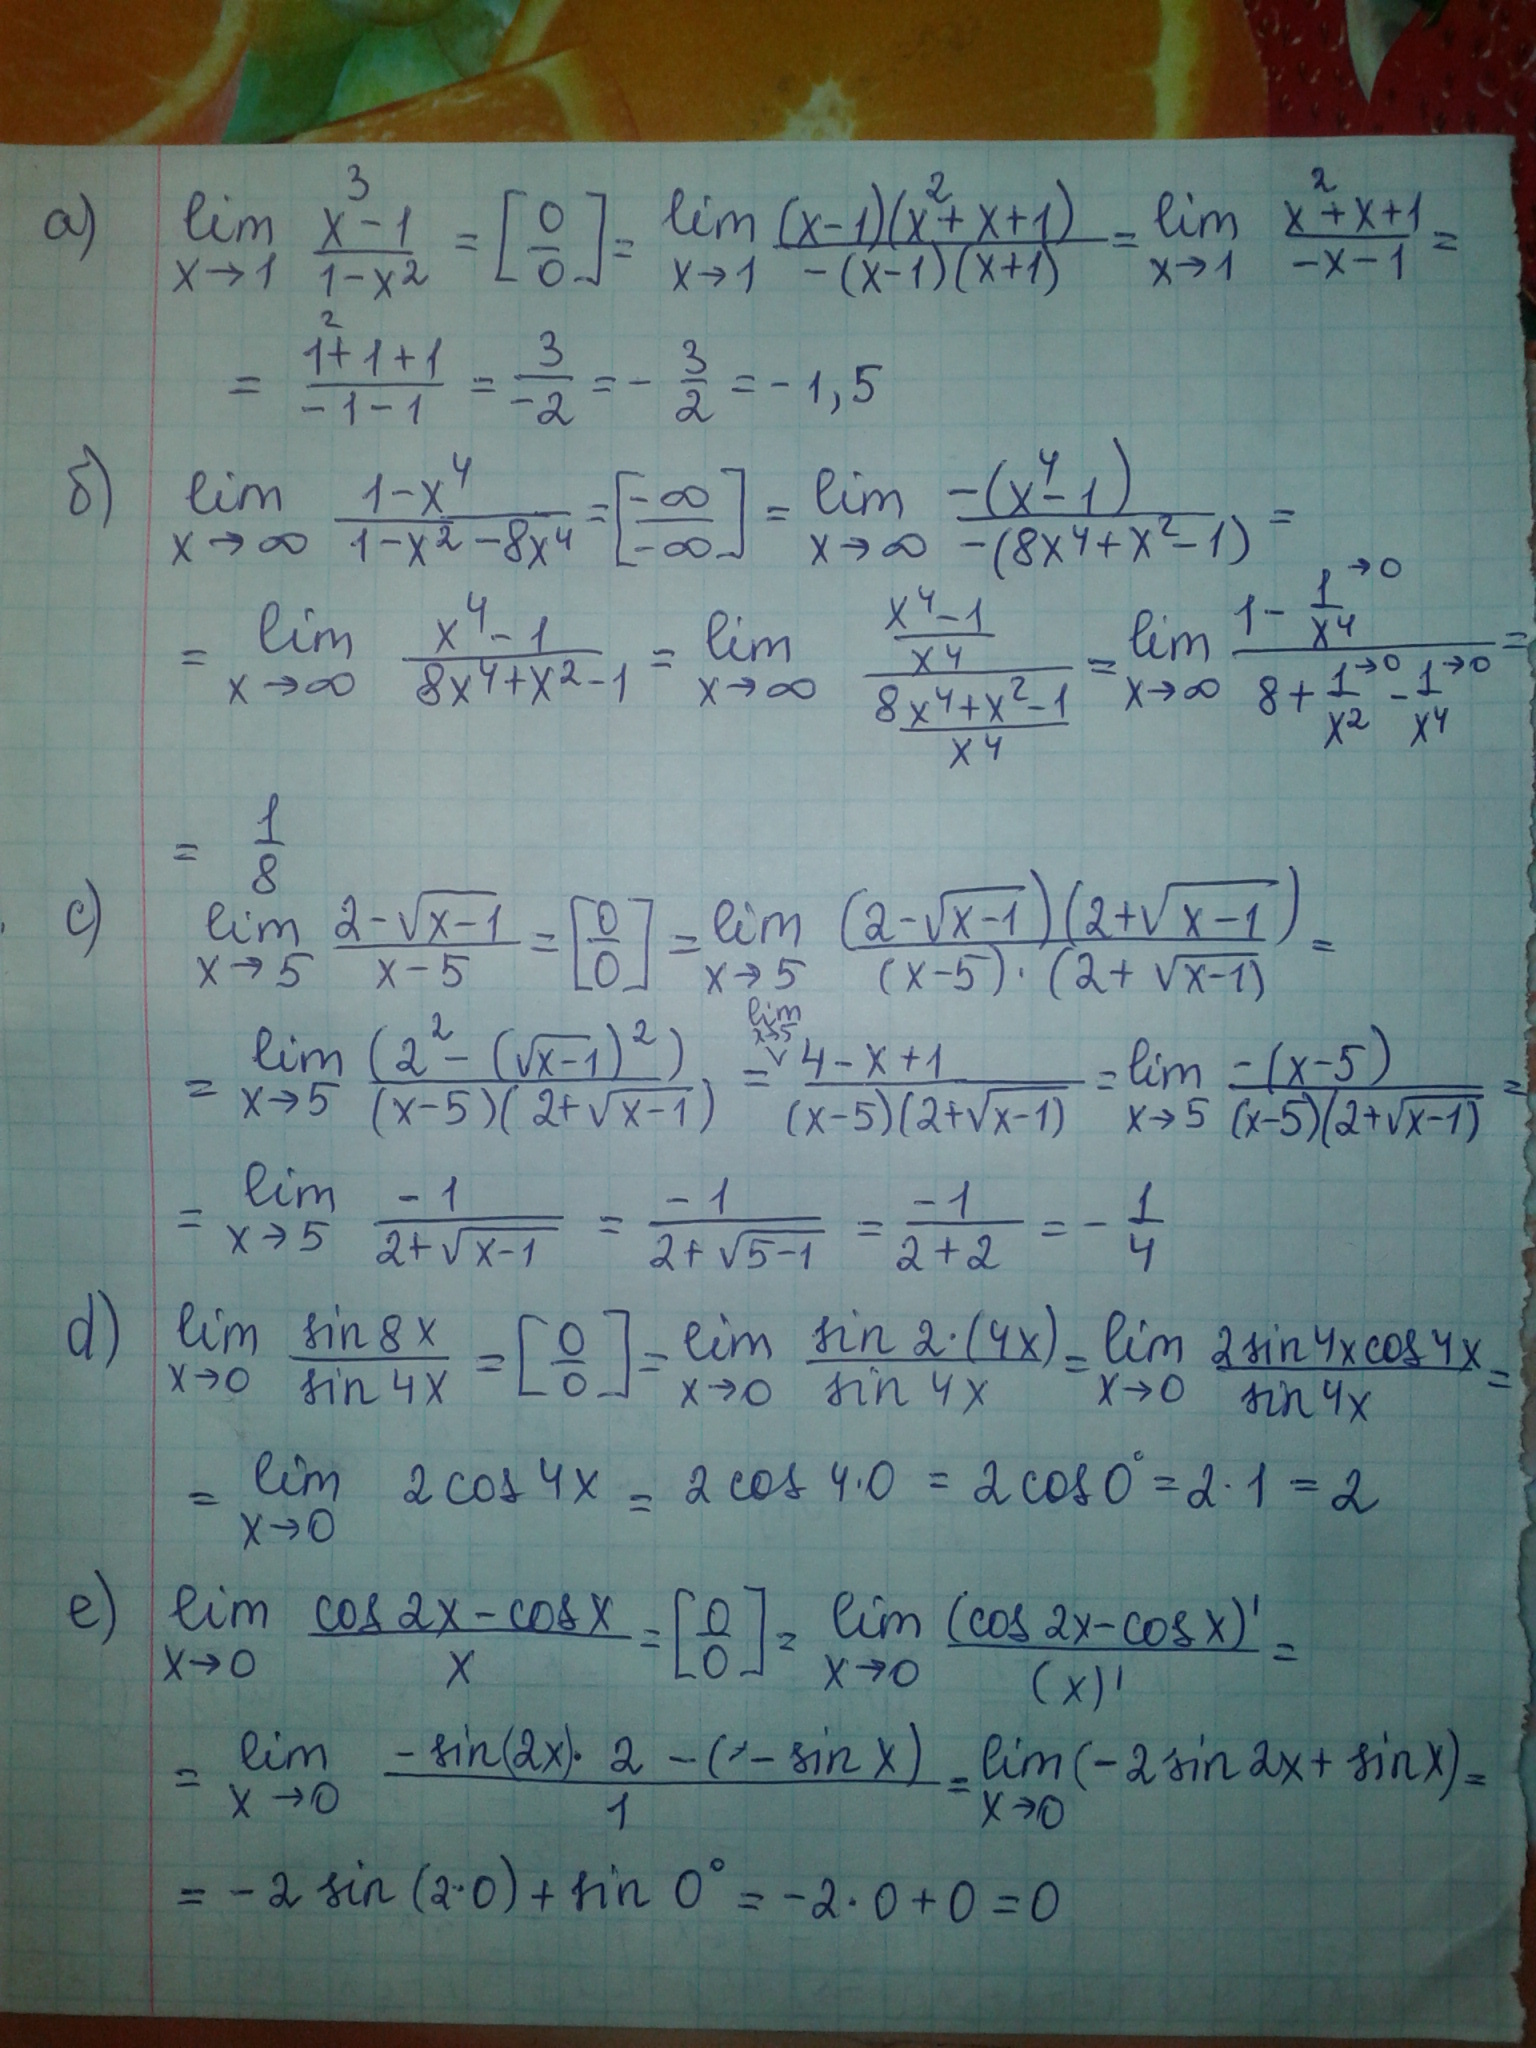 а) lim x→1 (x³-1)/(1-x²) = [0/0] = lim x→1 ((x-1)(x²+x+1))/(-(x-1)(x+1)) = lim x→1 (x²+x+1)/(-x-1) =
= (1²+1+1)/(-1-1) = 3/(-2) = -3/2 = -1,5
б) lim x→∞ (1-x⁴)/(1-x²-8x⁴) = [-∞/-∞] = lim x→∞ (-(x⁴-1))/(-(8x⁴+x²-1)) =
= lim x→∞ (x⁴-1)/(8x⁴+x²-1) = lim x→∞ ((x⁴-1)/x⁴)/((8x⁴+x²-1)/x⁴) = lim x→∞ (1-1/x⁴→0)/(8+1/x²→0-1/x⁴→0) =
= 1/8
c) lim x→5 (2-√(x-1))/(x-5) = [0/0] = lim x→5 ((2-√(x-1))(2+√(x-1)))/((x-5)·(2+√(x-1))) =
= lim x→5 (2²-(√(x-1))²)/((x-5)(2+√(x-1))) = lim x→5 (4-x+1)/((x-5)(2+√(x-1))) = lim x→5 (-(x-5))/((x-5)(2+√(x-1))) =
= lim x→5 (-1)/(2+√(x-1)) = (-1)/(2+√(5-1)) = (-1)/(2+2) = -1/4
d) lim x→0 (sin 8x)/(sin 4x) = [0/0] = lim x→0 (sin 2·(4x))/(sin 4x) = lim x→0 (2sin4xcos4x)/(sin4x) =
= lim x→0 2cos4x = 2cos 4·0 = 2cos0° = 2·1 = 2
e) lim x→0 (cos2x-cosx)/x = [0/0] = lim x→0 (cos2x-cosx)'/(x)' =
= lim x→0 (-sin(2x)·2-(-sinx))/1 = lim x→0 (-2sin2x+sinx) =
= -2sin(2·0)+sin0° = -2·0+0 = 0